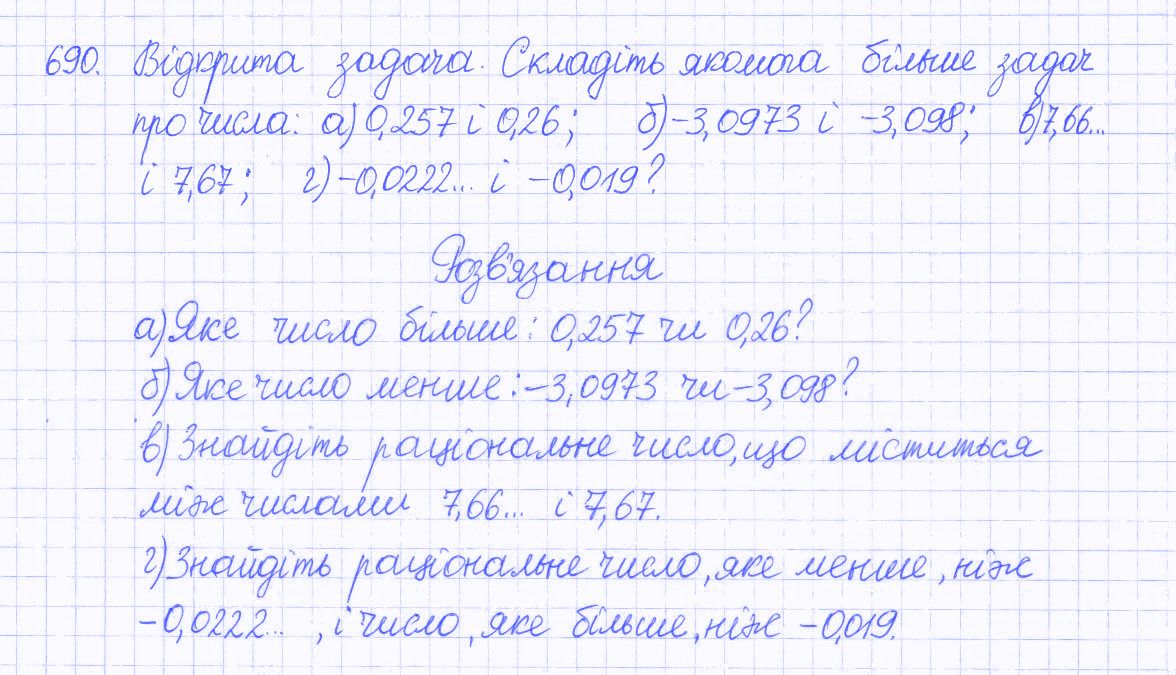 690. Відкрита задача. Складіть якомога більше задач
про числа: а) 0,257 і 0,26; б) -3,0973 і -3,098; в) 7,66...
і 7,67; г) -0,0222... і -0,019?
Розв'язання
а) Яке число більше: 0,257 чи 0,26?
б) Яке число менше: -3,0973 чи -3,098?
в) Знайдіть раціональне число, що міститься
між числами 7,66... і 7,67.
г) Знайдіть раціональне число, яке менше, ніж
-0,0222... , і число, яке більше, ніж -0,019.